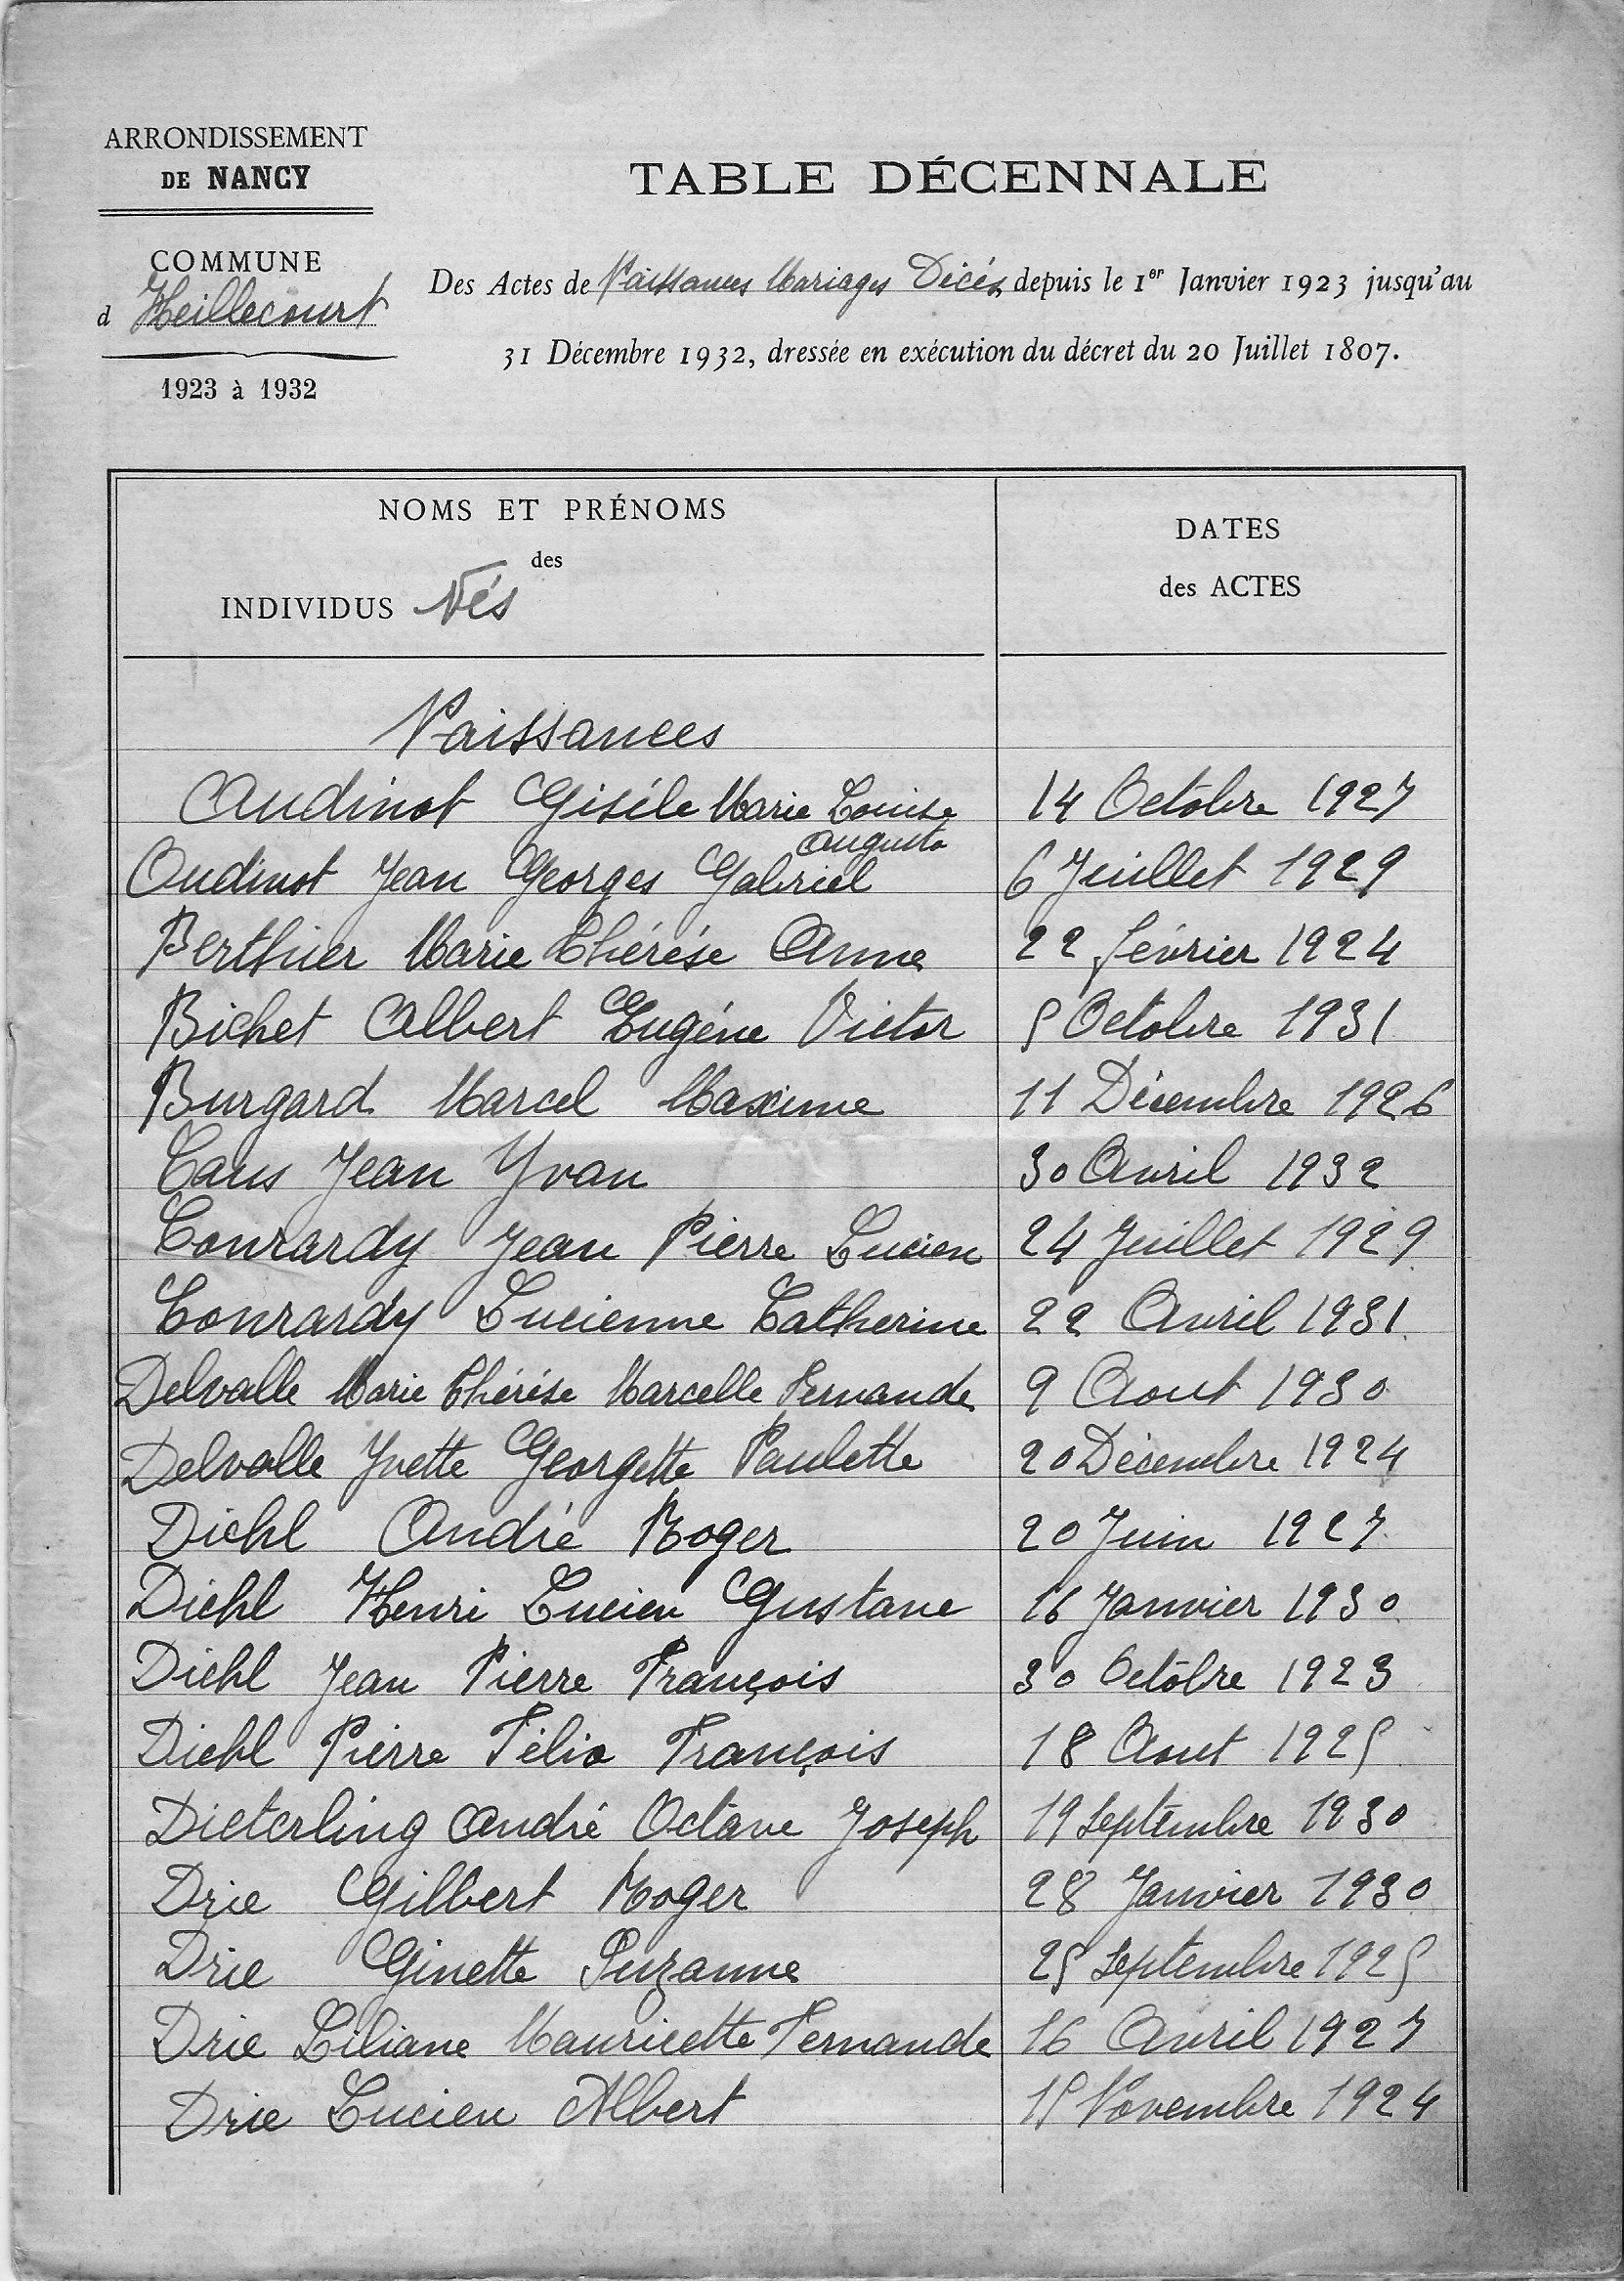 ARRONDISSEMENT
DE NANCY
TABLE DÉCENNALE
COMMUNE
d Heillecourt
Des Actes de Naissances Mariages Décés depuis le 1er Janvier 1923 jusqu'au
31 Décembre 1932, dressée en exécution du décret du 20 Juillet 1807.
1923 à 1932
NOMS ET PRÉNOMS
des
INDIVIDUS Nés
DATES
des ACTES
Naissances
Audinot Giséle Marie Louise 14 Octobre 1927
Augusta
Oudinot Jean Georges Gabriel 6 Juillet 1929
Berthier Marie Thérése Anne 22 février 1924
Bichet Albert Eugéne Victor 5 Octobre 1931
Burgard Marcel Maxime 11 Décembre 1926
Caus Jean Yvan 30 Avril 1932
Conrardy Jean Pierre Lucien 24 Juillet 1929
Conrardy Lucienne Catherine 22 Avril 1931
Delvalle Marie Thérése Marcelle Fernande 9 Aout 1930
Delvalle Yvette Georgette Paulette 20 Décembre 1924
Diehl André Roger 20 Juin 1927
Diehl Henri Lucien Gustave 16 Janvier 1930
Diehl Jean Pierre François 30 Octobre 1923
Diehl Pierre Félix François 18 Aout 1925
Dieterling André Octave Joseph 19 Septembre 1930
Drie Gilbert Roger 28 Janvier 1930
Drie Ginette Suzanne 25 Septembre 1925
Drie Liliane Mauricette Fernande 16 Avril 1927
Drie Lucien Albert 15 Novembre 1924